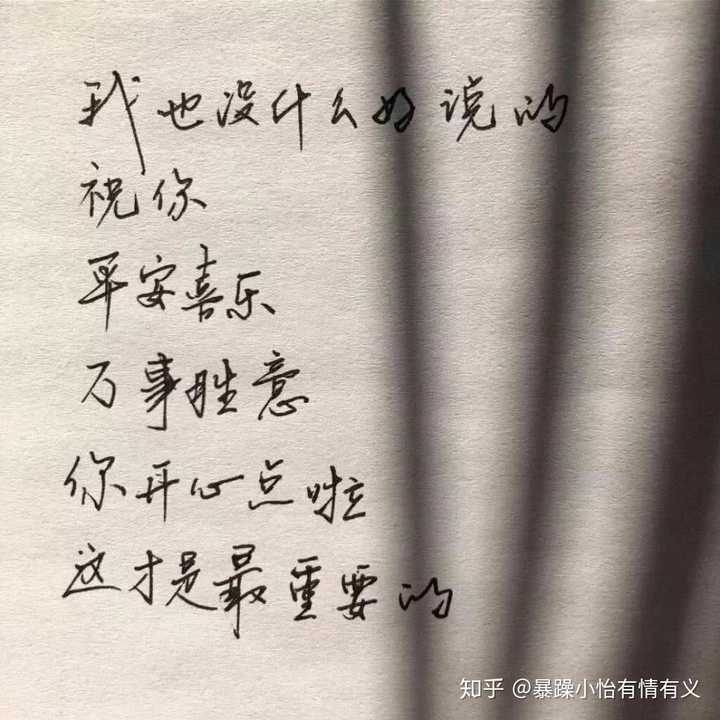 我也没什么好说的
祝你
平安喜乐
万事胜意
你开心点啦
这才是最重要的
知乎 @暴躁小怡有情有义